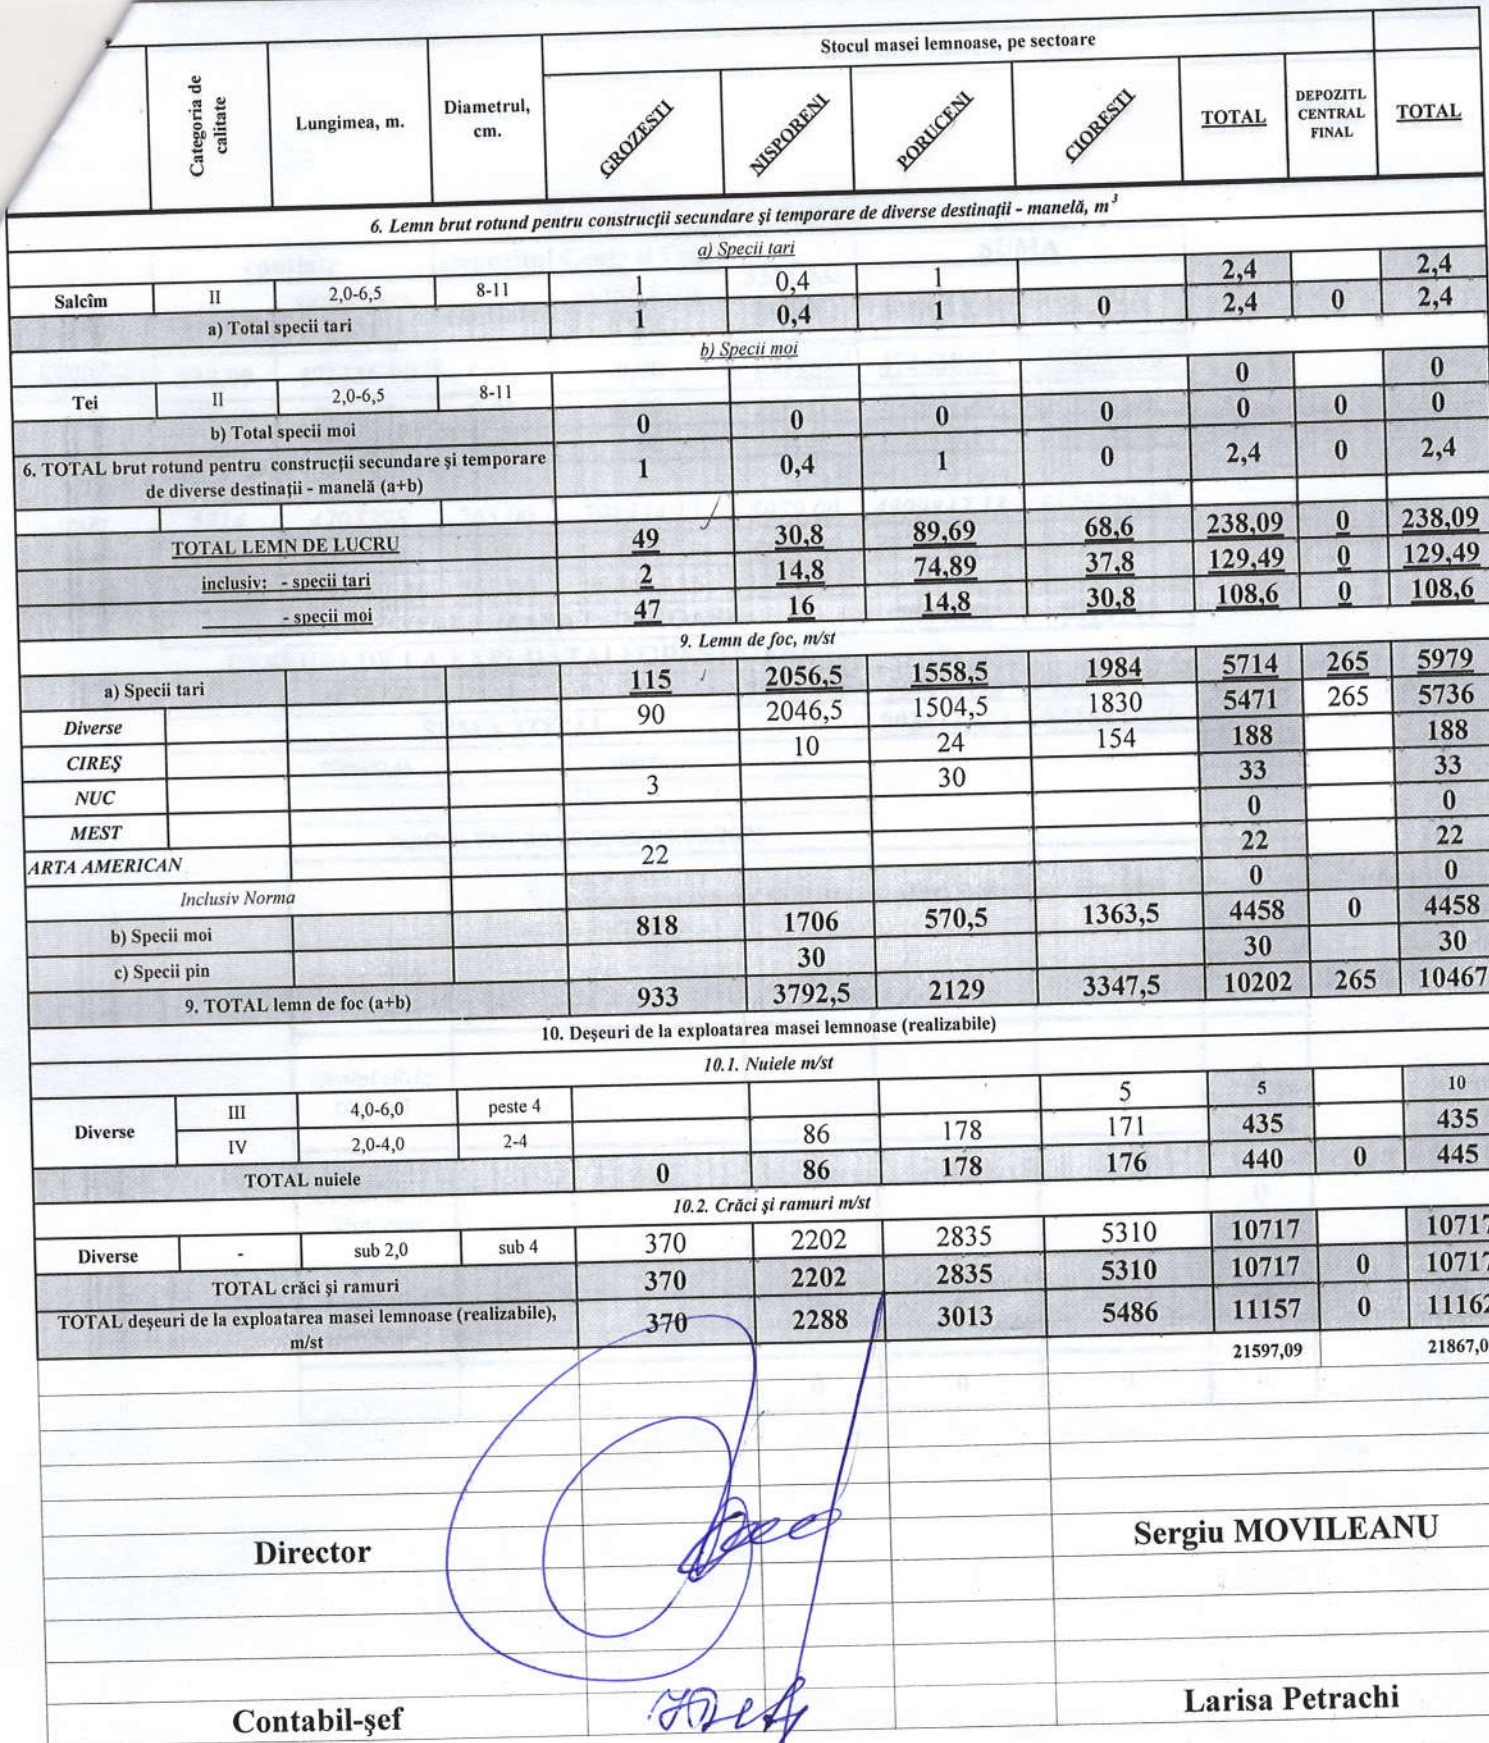 Stocul masei lemnoase, pe sectoare
Categoria de calitate Lungimea, m. Diametrul, cm. GROZESTI NISPORENI PORUCENI CIORESTI TOTAL DEPOZITL CENTRAL FINAL TOTAL
6. Lemn brut rotund pentru construcții secundare și temporare de diverse destinații - manelă, m³
a) Specii tari
Salcîm II 2,0-6,5 8-11 1 0,4 1 2,4 2,4
a) Total specii tari 1 0,4 1 0 2,4 0 2,4
b) Specii moi
Tei II 2,0-6,5 8-11 0 0
b) Total specii moi 0 0 0 0 0 0 0
6. TOTAL brut rotund pentru construcții secundare și temporare
de diverse destinații - manelă (a+b) 1 0,4 1 0 2,4 0 2,4
TOTAL LEMN DE LUCRU 49 30,8 89,69 68,6 238,09 0 238,09
inclusiv: - specii tari 2 14,8 74,89 37,8 129,49 0 129,49
- specii moi 47 16 14,8 30,8 108,6 0 108,6
9. Lemn de foc, m/st
a) Specii tari 115 2056,5 1558,5 1984 5714 265 5979
Diverse 90 2046,5 1504,5 1830 5471 265 5736
CIREȘ 10 24 154 188 188
NUC 3 30 33 33
MEST 0 0
ARTA AMERICAN 22 22 22
Inclusiv Norma 0 0
b) Specii moi 818 1706 570,5 1363,5 4458 0 4458
c) Specii pin 30 30 30
9. TOTAL lemn de foc (a+b) 933 3792,5 2129 3347,5 10202 265 10467
10. Deșeuri de la exploatarea masei lemnoase (realizabile)
10.1. Nuiele m/st
Diverse III 4,0-6,0 peste 4 5 5 10
IV 2,0-4,0 2-4 86 178 171 435 435
TOTAL nuiele 0 86 178 176 440 0 445
10.2. Crăci și ramuri m/st
Diverse - sub 2,0 sub 4 370 2202 2835 5310 10717 10717
TOTAL crăci și ramuri 370 2202 2835 5310 10717 0 10717
TOTAL deșeuri de la exploatarea masei lemnoase (realizabile),
m/st 370 2288 3013 5486 11157 0 11162
21597,09 21867,0
Director Sergiu MOVILEANU
Contabil-șef Larisa Petrachi